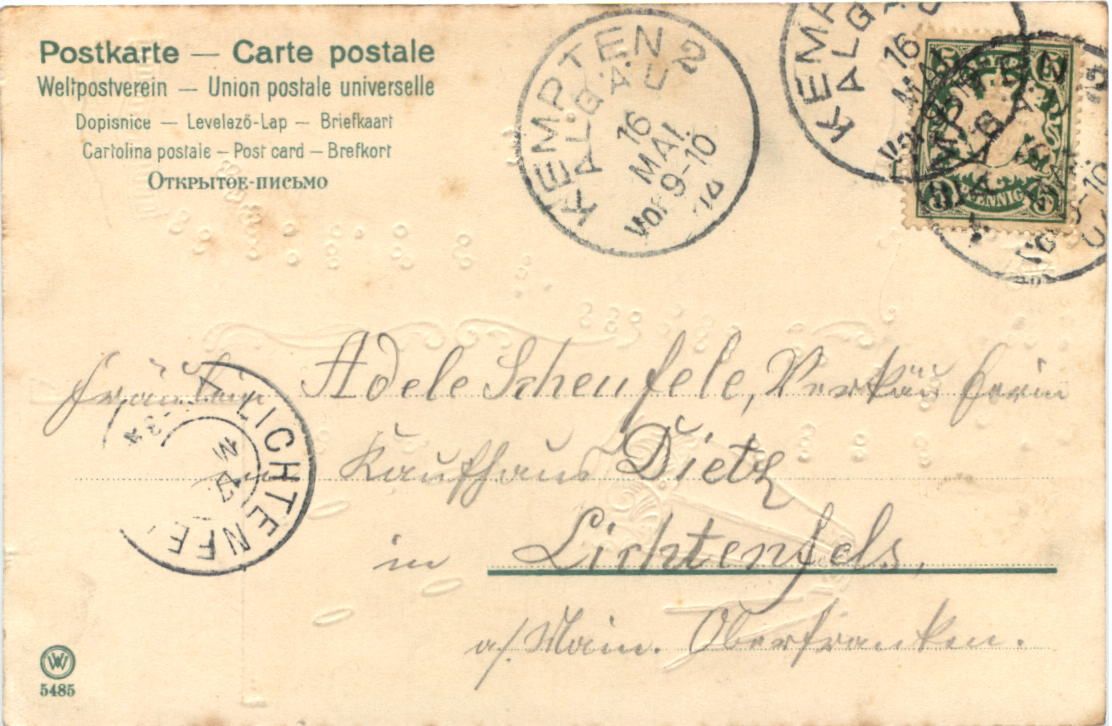 Postkarte — Carte postale
Weltpostverein — Union postale universelle
Dopisnice — Levelező-Lap — Briefkaart
Cartolina postale — Post card — Brefkort
Открытое-письмо
KEMPTEN 2
ALGÄU
16
MAI.
Vor 9-10
04
KEMP
ALG
16
MAI
Vor 9-10
PFENNIG
Fräulein Adele Scheufele, Verkäuferin
Kaufhaus Dietz
in Lichtenfels,
a/Main. Oberfranken.
LICHTENFE
W
5485